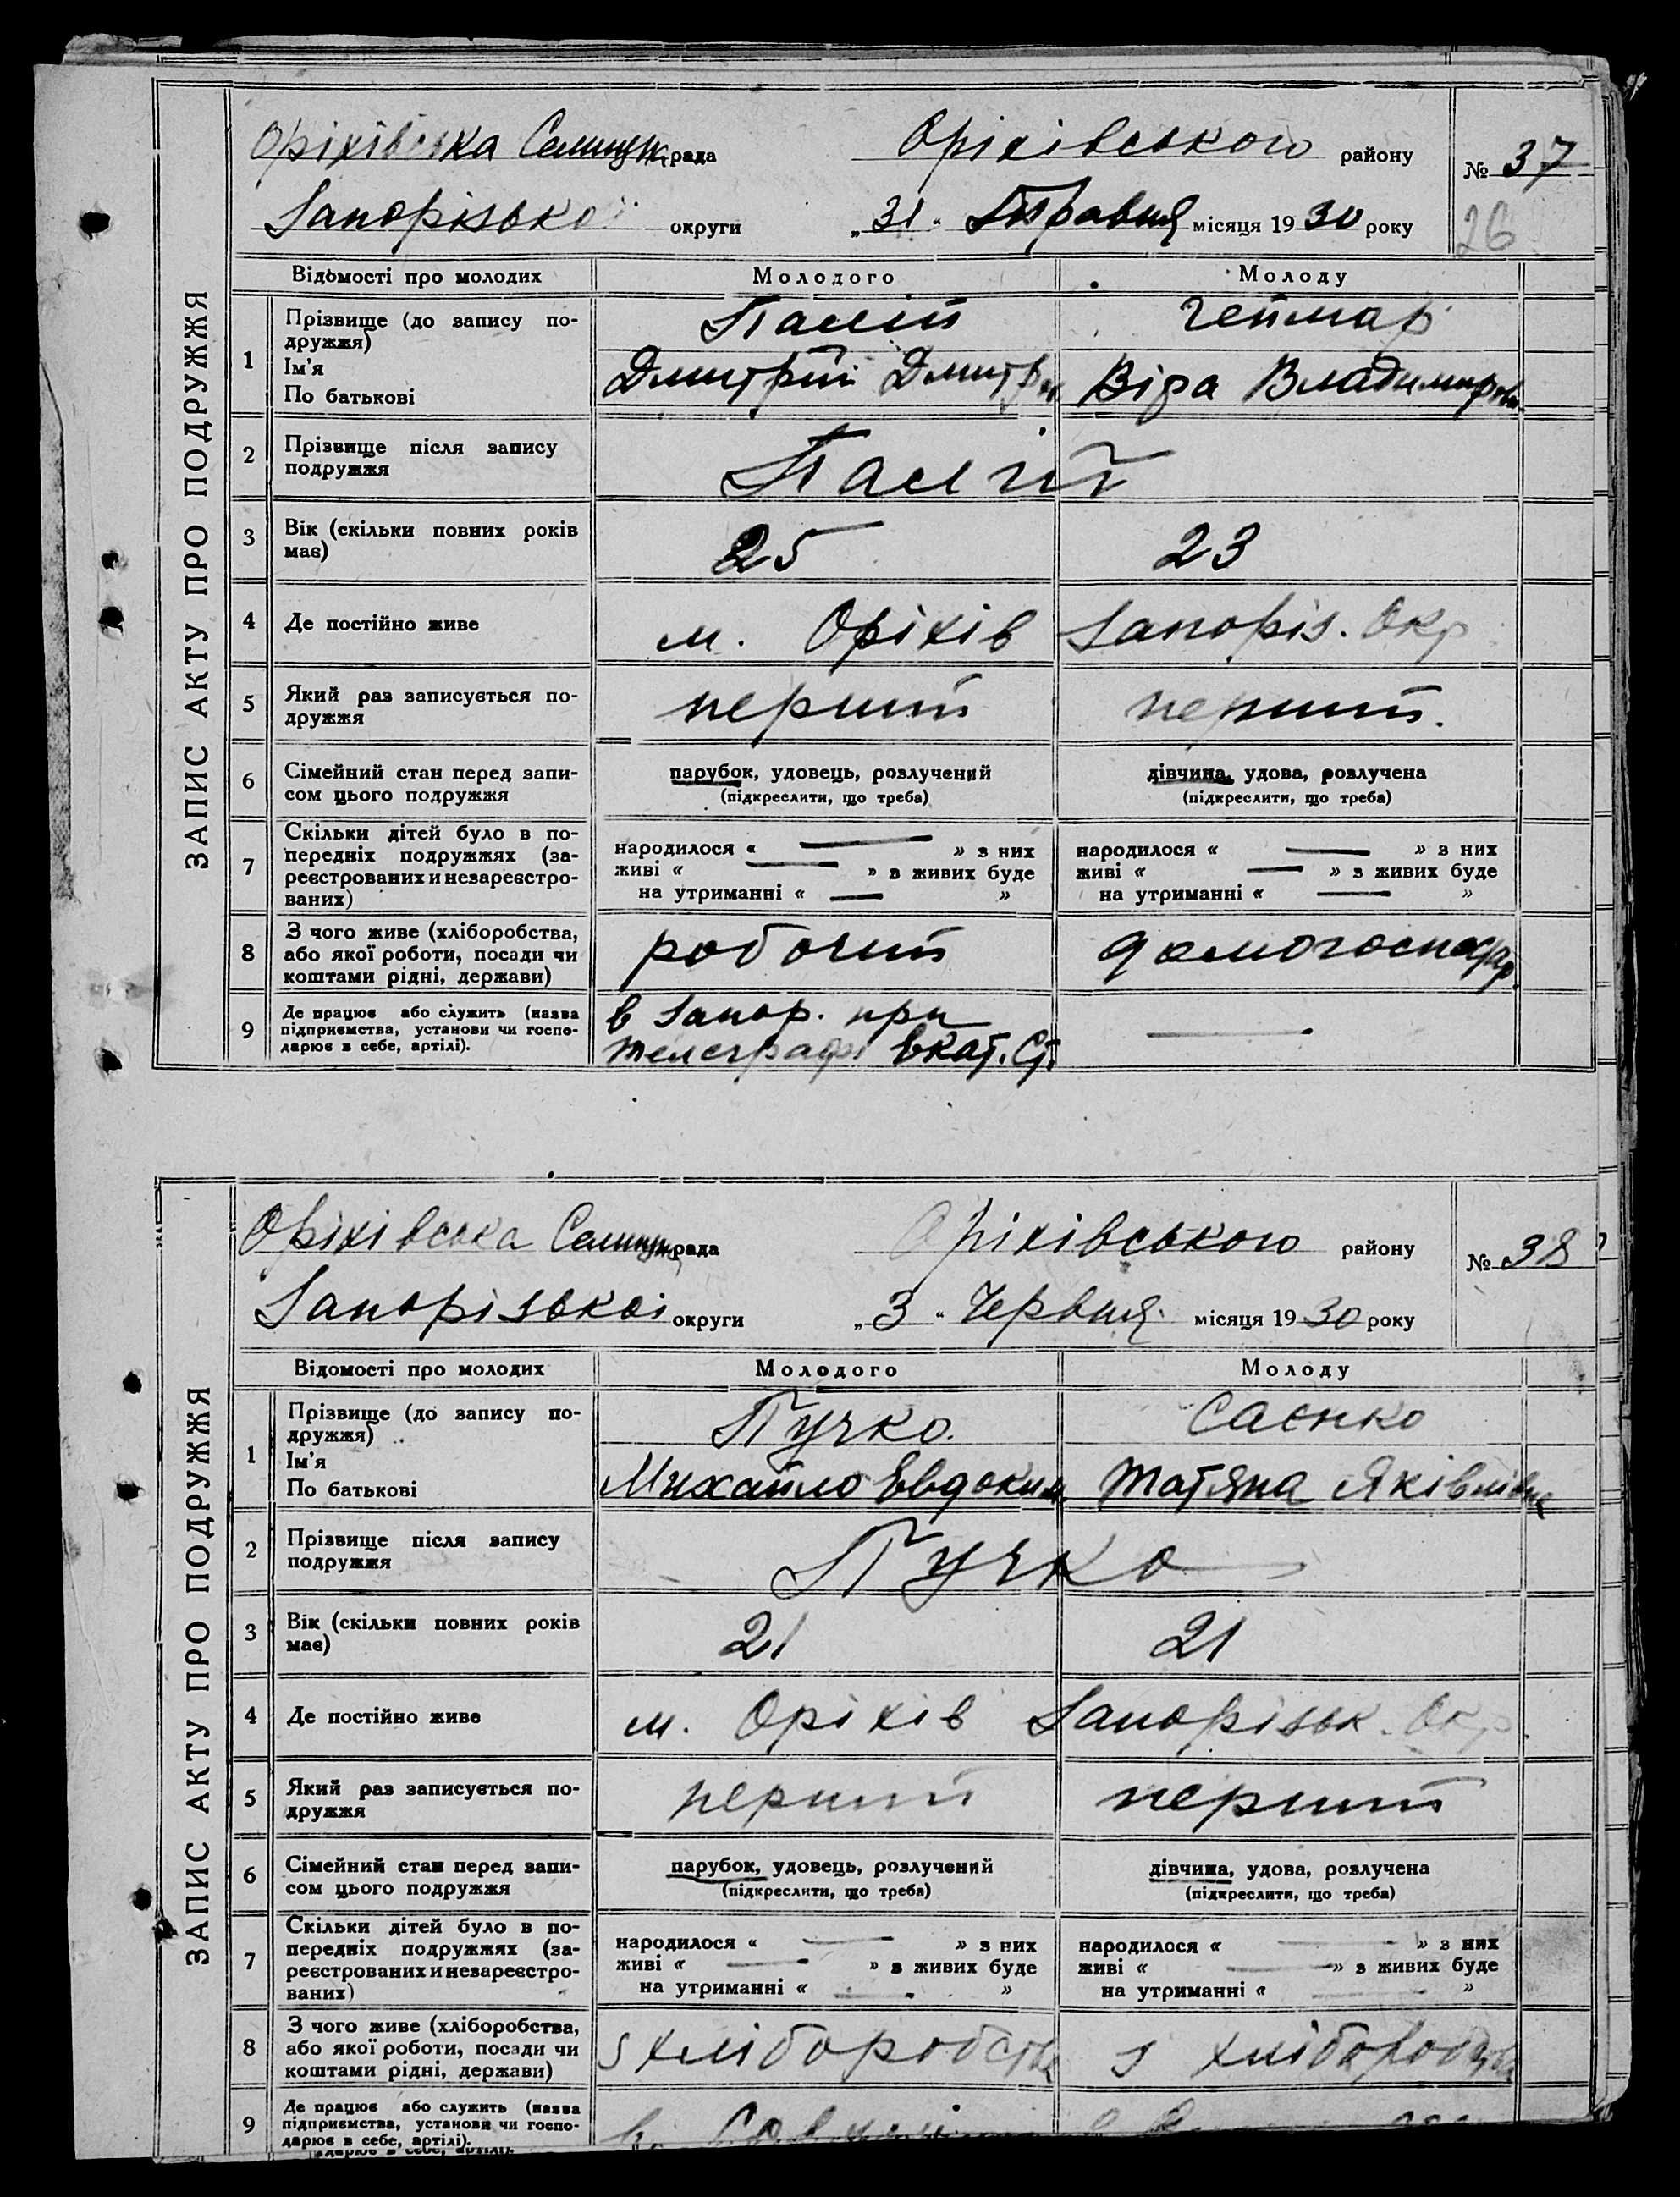 ЗАПИС АКТУ ПРО ПОДРУЖЖЯ
Оріхівська Селищн рада Оріхівського району № 37
Запорізької округи „31“ Травня місяця 1930 року 26
Відомості про молодих Молодого Молоду
1 Прізвище (до запису по-
дружжя) Палій Геймар
Ім'я
По батькові Дмитрій Дмитр Віра Владимиров
2 Прізвище після запису
подружжя Палій
3 Вік (скільки повних років
має) 25 23
4 Де постійно живе м. Оріхів Запоріз. Окр
5 Який раз записується по-
дружжя перший перший.
6 Сімейний стан перед запи-
сом цього подружжя парубок, удовець, розлучений дівчина, удова, розлучена
(підкреслити, що треба) (підкреслити, що треба)
7 Скільки дітей було в по-
передніх подружжях (за-
реєстрованих и незареєстро-
ваних) народилося « — » з них народилося « — » з них
живі « — » з живих буде живі « — » з живих буде
на утриманні « — » на утриманні « — »
8 З чого живе (хліборобства,
або якої роботи, посади чи
коштами рідні, держави) робочий домогосподар.
9 Де працює або служить (назва
підприємства, установи чи госпо-
дарює в себе, артілі). в Запор. при —
телеграфі Вкат. Ст.
ЗАПИС АКТУ ПРО ПОДРУЖЖЯ
Оріхівська Селищн рада Оріхівського району № 38
Запорізької округи „3“ Червня місяця 1930 року
Відомості про молодих Молодого Молоду
1 Прізвище (до запису по-
дружжя) Пучко Саєнко
Ім'я
По батькові Михайло Евдоким. Татяна Яківлівна
2 Прізвище після запису
подружжя Пучко
3 Вік (скільки повних років
має) 21 21
4 Де постійно живе м. Оріхів Запорізьк. Окр.
5 Який раз записується по-
дружжя перший перший
6 Сімейний стан перед запи-
сом цього подружжя парубок, удовець, розлучений дівчина, удова, розлучена
(підкреслити, що треба) (підкреслити, що треба)
7 Скільки дітей було в по-
передніх подружжях (за-
реєстрованих и незареєстро-
ваних) народилося « — » з них народилося « — » з них
живі « — » з живих буде живі « — » з живих буде
на утриманні « — » на утриманні « — »
8 З чого живе (хліборобства,
або якої роботи, посади чи
коштами рідні, держави) з хліборобства з хліборобства
9 Де працює або служить (назва
підприємства, установи чи госпо-
дарює в себе, артілі). в